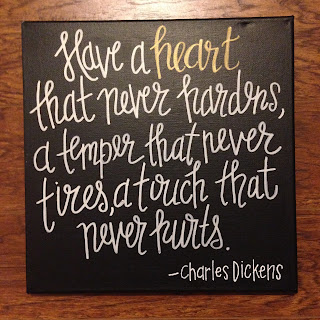 Have a heart
that never hardens,
a temper that never
tires, a touch that
never hurts.
-Charles Dickens